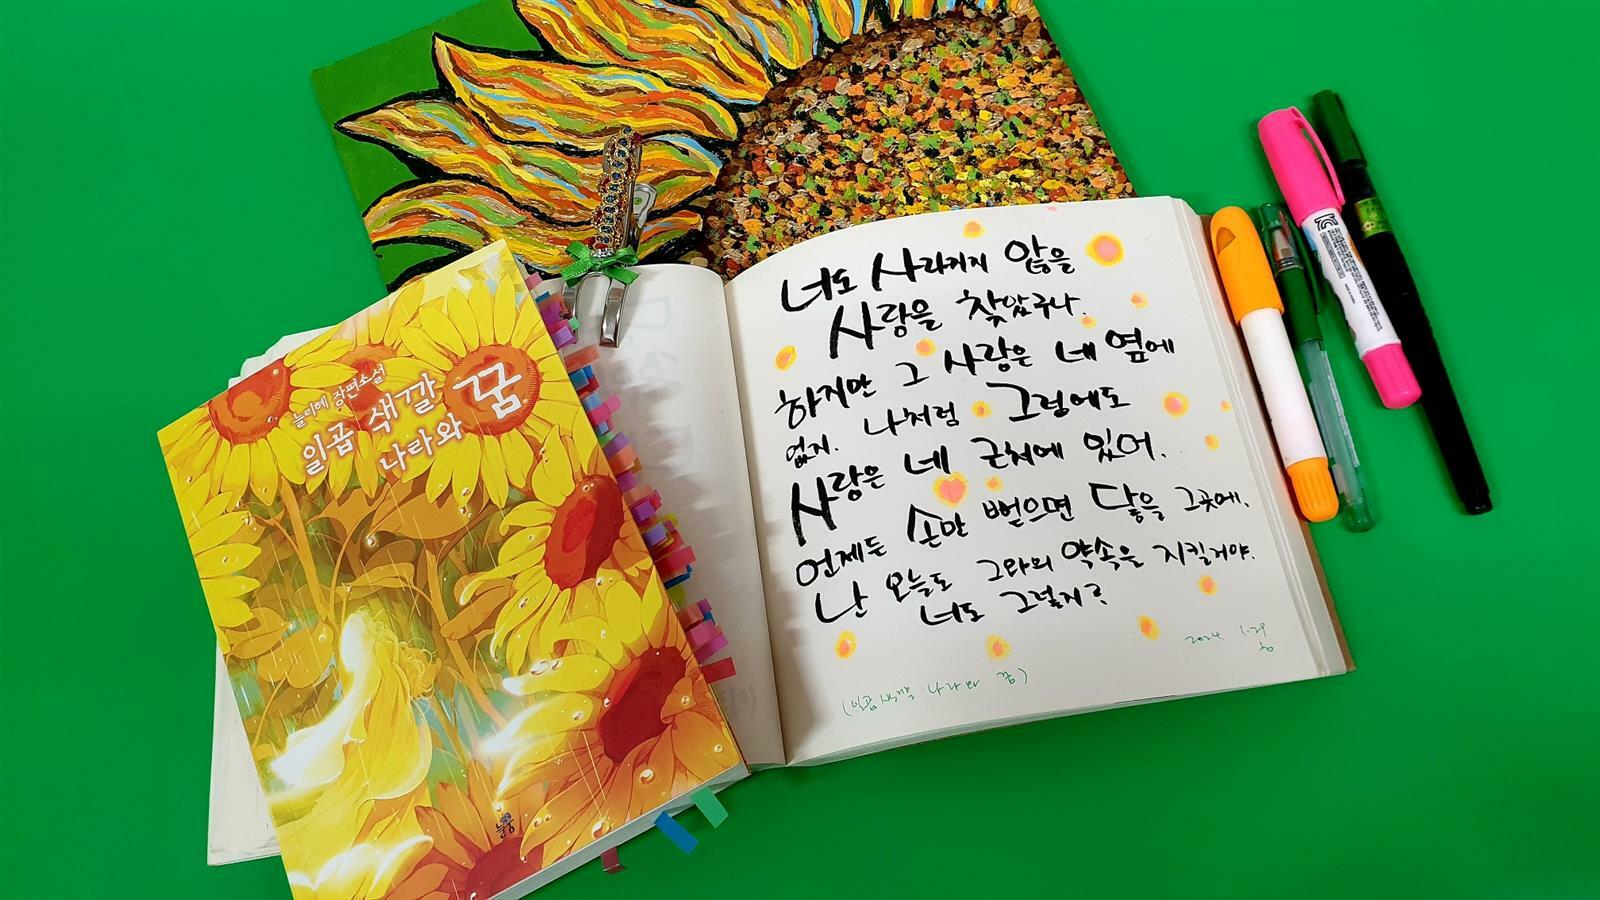 늘리혜 장편소설
일곱 색깔
나라와 꿈
늘꿈
너도 사라지지 않을
사랑을 찾았구나.
하지만 그 사랑은 네 옆에
없지. 나처럼 그럼에도
사랑은 네 근처에 있어.
언제든 손만 뻗으면 닿을 그곳에.
난 오늘도 그와의 약속을 지킬거야.
너도 그렇지?
2024. 1. 29
(일곱 색깔 나라와 꿈)